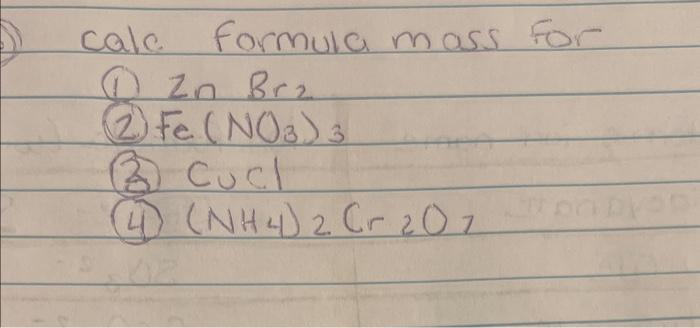 calc formula mass for
① Zn Br2
② Fe(NO3)3
③ CuCl
④ (NH4)2 Cr2O7